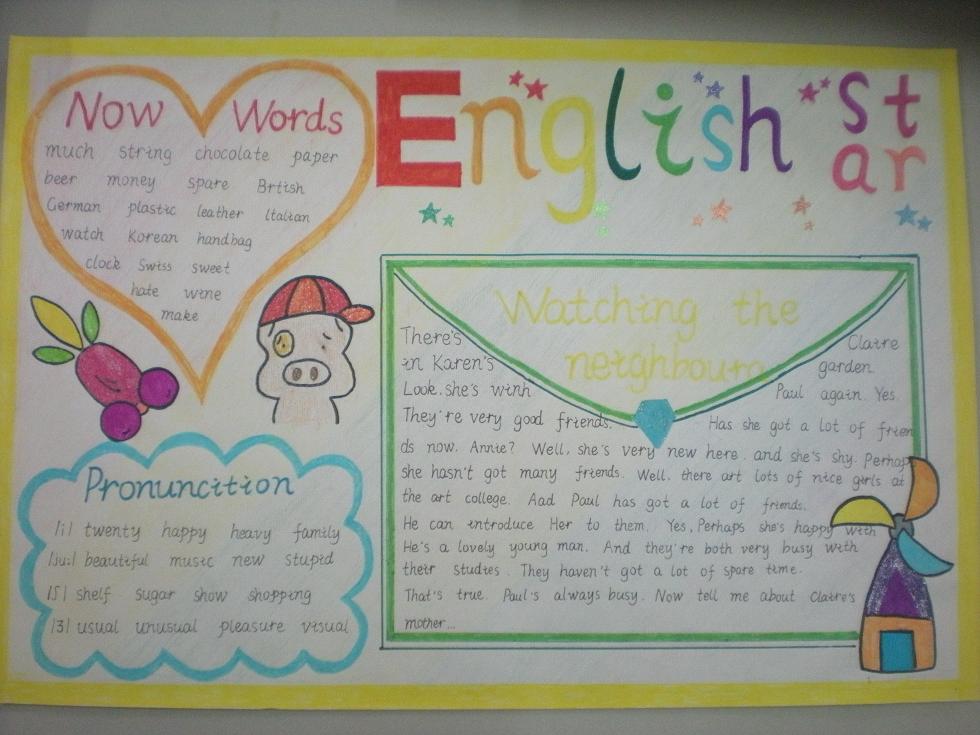 Now Words
much string chocolate paper
beer money spare Brtish
German plastic leather Italian
watch Korean handbag
clock Swiss sweet
hate wine
make
English
St
ar
Pronuncition
/i/ twenty happy heavy family
/ju:/ beautiful music new stupid
/ʃ/ shelf sugar show shopping
/ʒ/ usual unusual pleasure visual
Watching the
neighbours
There's Claire
in Karen's garden.
Look. she's winh Paul again. Yes.
They're very good friends. Has she got a lot of frien
ds now. Annie? Well, she's very new here. and she's shy. Perhaps
she hasn't got many friends. Well, there art lots of nice girls at
the art college. Aad Paul has got a lot of friends.
He can introduce Her to them. Yes, Perhaps she's happy with
He's a lovely young man. And they're both very busy with
their studies. They haven't got a lot of spare time.
That's true. Paul's always busy. Now tell me about Claire's
mother...